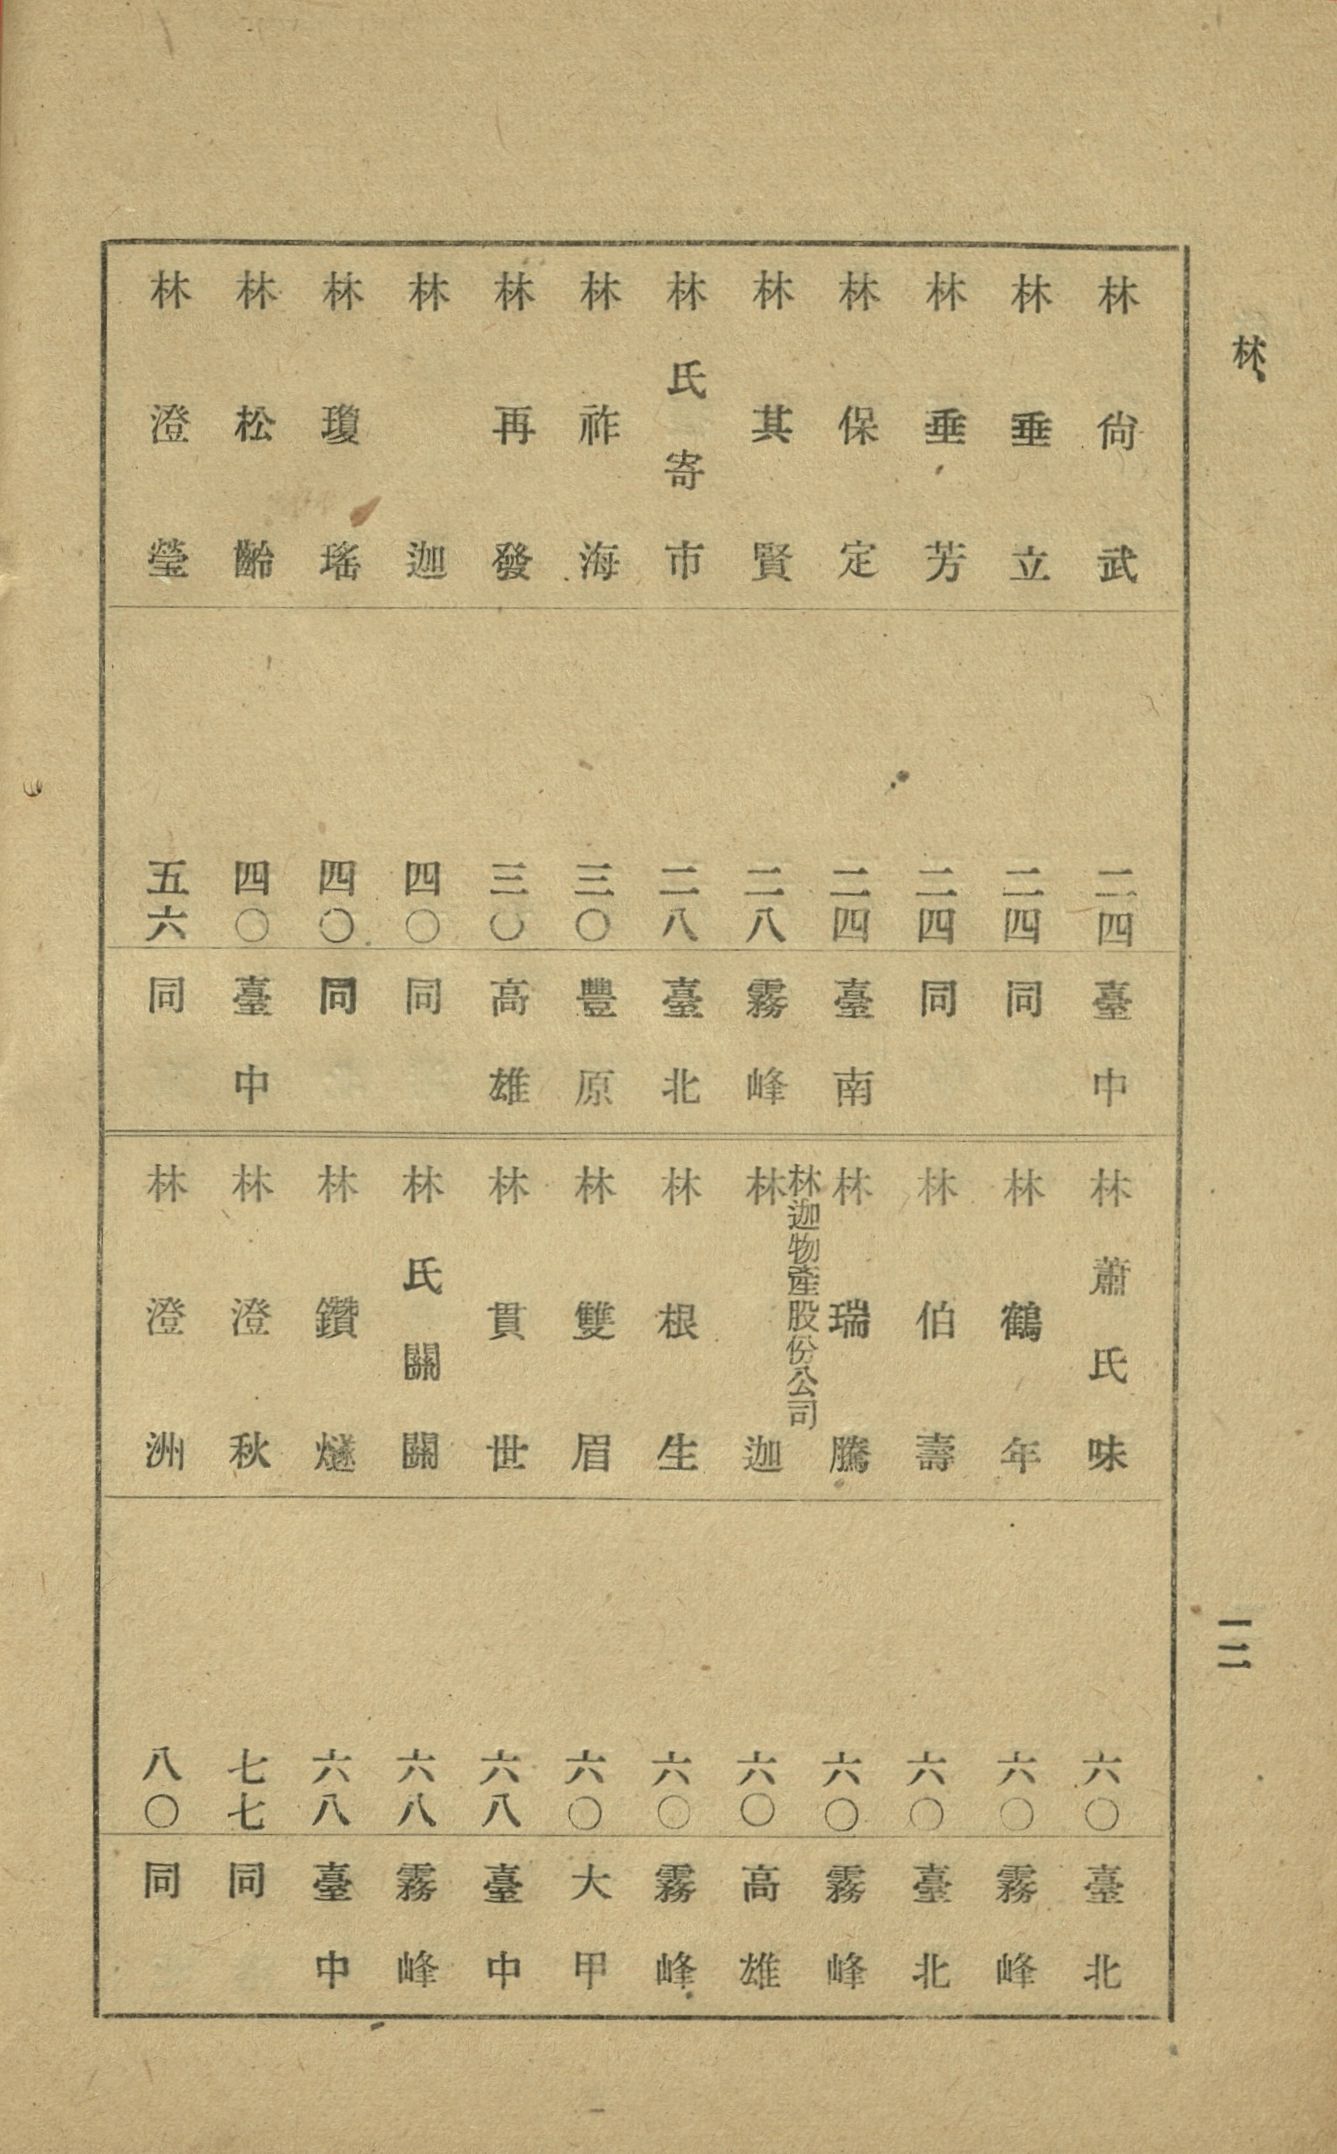 林
一二
林尙武 二四 臺中
林垂立 二四 同
林垂芳 二四 同
林保定 二四 臺南
林其賢 二八 霧峰
林氏寄市 二八 臺北
林祚海 三〇 豐原
林再發 三〇 高雄
林迦 四〇 同
林瓊瑤 四〇 同
林松齡 四〇 臺中
林澄瑩 五六 同
林蕭氏味 六〇 臺北
林鶴年 六〇 霧峰
林伯壽 六〇 臺北
林瑞騰 六〇 霧峰
林迦物產股份公司
林迦 六〇 高雄
林根生 六〇 霧峰
林雙眉 六〇 大甲
林貫世 六八 臺中
林氏關關 六八 霧峰
林鑽燧 六八 臺中
林澄秋 七七 同
林澄洲 八〇 同